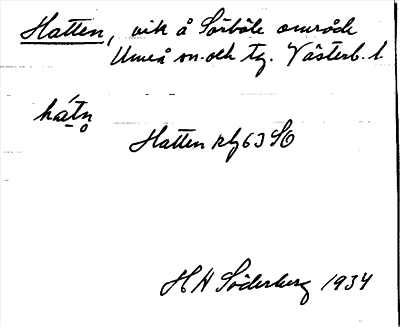 Hatten, vik å Sörböle område
Umeå sn. och tg. Västerb. l.
hátn̥
Hatten rlg 63 SO
H H Söderberg 1934